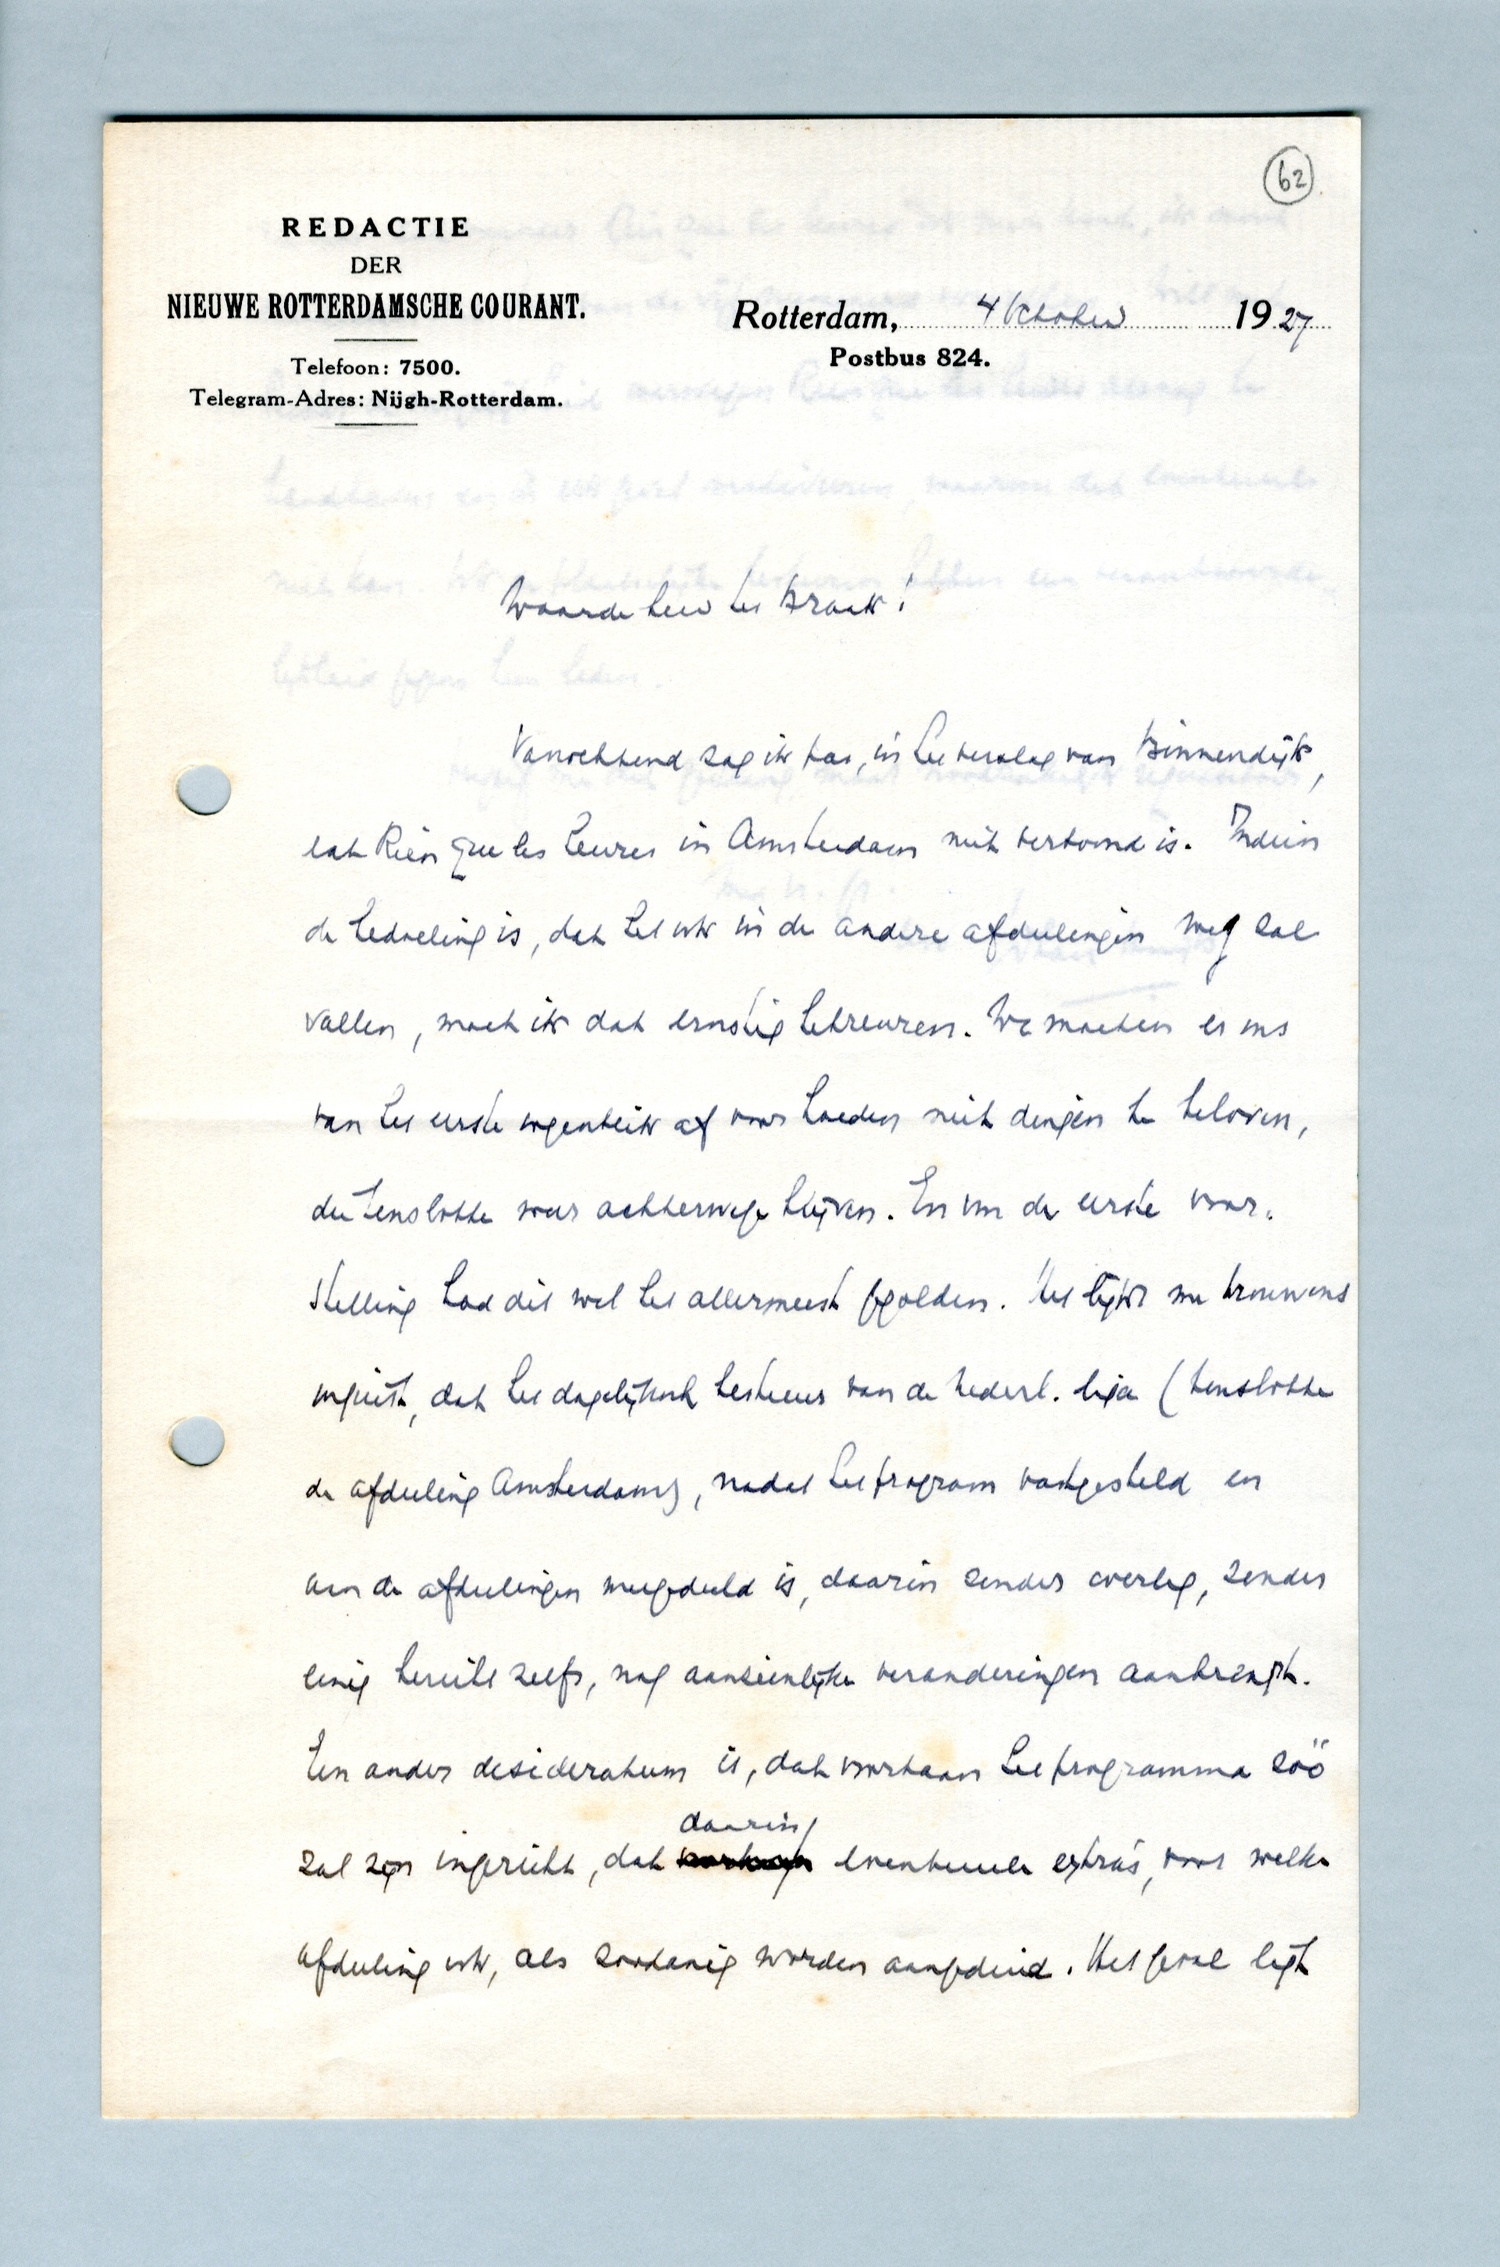 62
REDACTIE
DER
NIEUWE ROTTERDAMSCHE COURANT.
Telefoon: 7500.
Telegram-Adres: Nijgh-Rotterdam.
Rotterdam, 4 October 1927
Postbus 824.
Waarde heer ter Braak!
Vanochtend zag ik pas, in het verslag van Binnendijk,
dat Rien que les heures in Amsterdam niet vertoond is. Indien
de bedoeling is, dat het ook in de andere afdeelingen weg zal
vallen, moet ik dat ernstig betreuren. We moeten er ons
van het eerste oogenblik af voor hoeden niet dingen te beloven,
die tenslotte weer achterwege blijven. En van de eerste voor-
stelling had dit wel het allermeest gegolden. Het lijkt me trouwens
onjuist, dat het dagelijksch bestuur van de Nederl. liga (tenslotte
de afdeeling Amsterdam), nadat het program vastgesteld en
aan de afdeelingen meegedeeld is, daarin zonder overleg, zonder
eenig bericht zelfs, nog aanzienlijke veranderingen aanbrengt.
Een ander desideratum is, dat voortaan het programma zóó
zal zijn ingericht, dat daarin eventueele extra's, voor welke
afdeeling ook, als zoodanig worden aangeduid. Het geval ligt